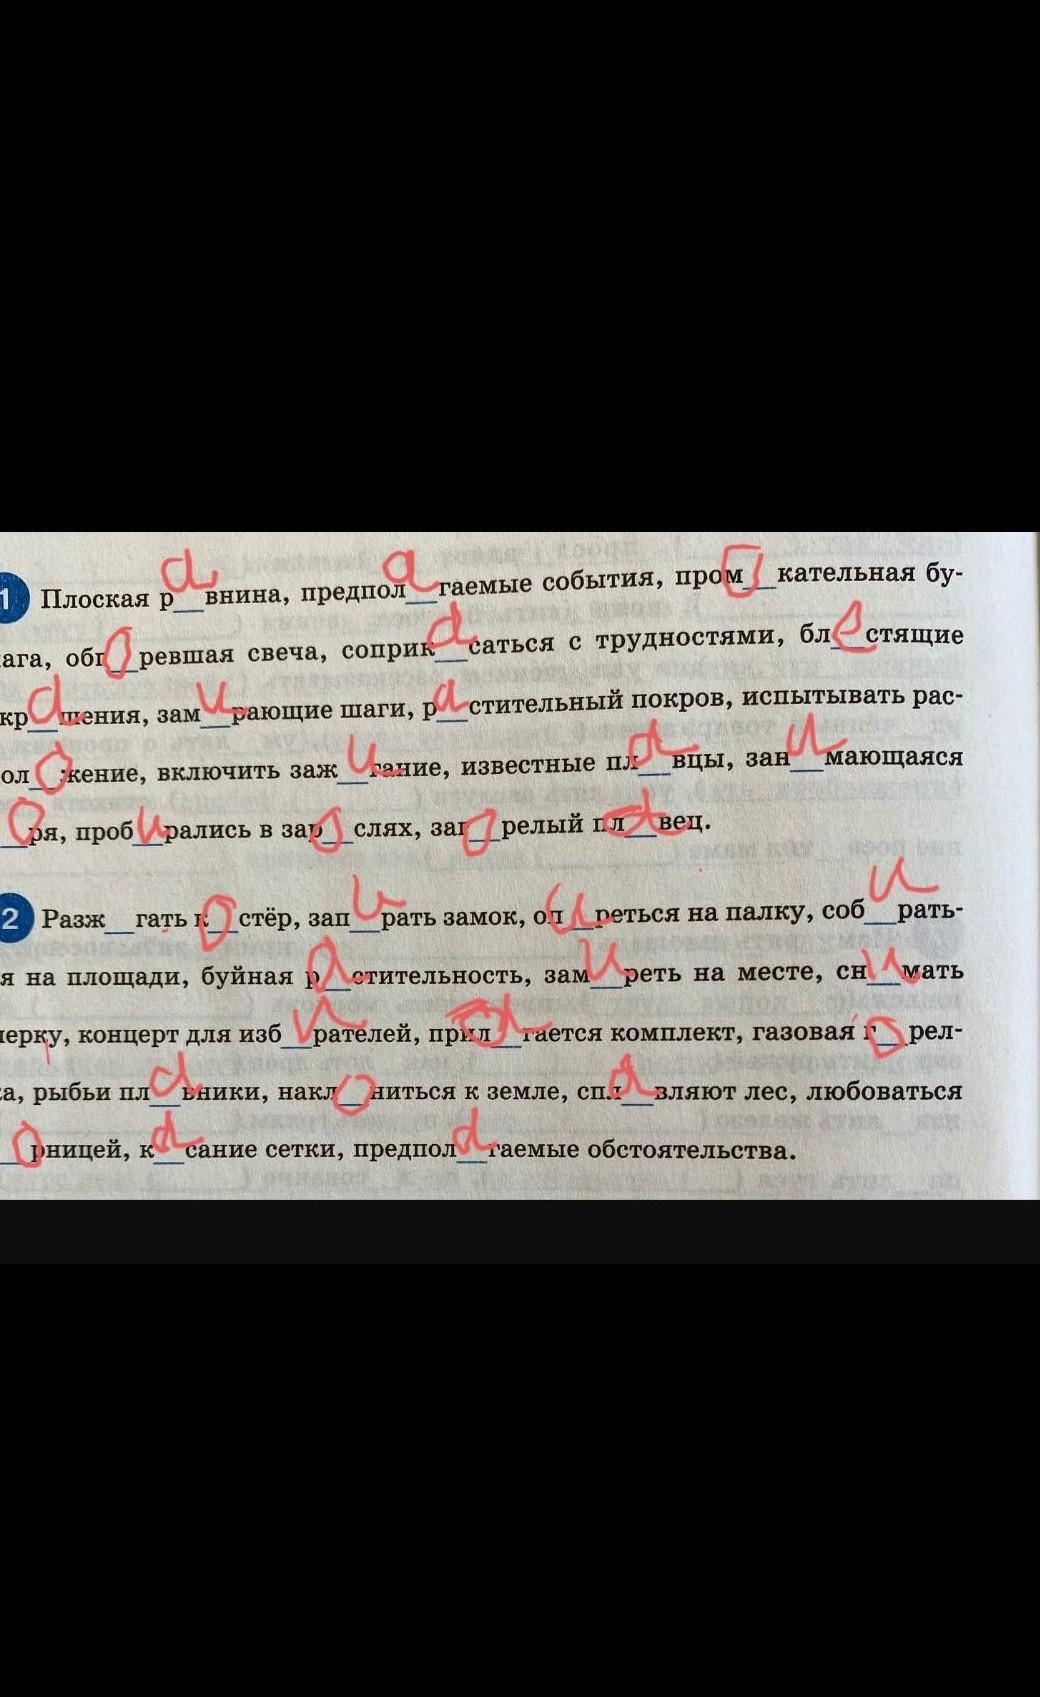 1 Плоская равнина, предполагаемые события, промокательная бу-
ага, обгоревшая свеча, соприкасаться с трудностями, блестящие
крашения, замирающие шаги, растительный покров, испытывать рас-
оложение, включить зажигание, известные плавцы, занимающаяся
оря, пробирались в зарослях, загорелый плавец.
2 Разж__гать костёр, запирать замок, опиреться на палку, собирать-
я на площади, буйная растительность, замиреть на месте, снимать
мерку, концерт для избирателей, прилагается комплект, газовая горел-
а, рыбьи плавники, наклониться к земле, сплавляют лес, любоваться
орницей, касание сетки, предполагаемые обстоятельства.